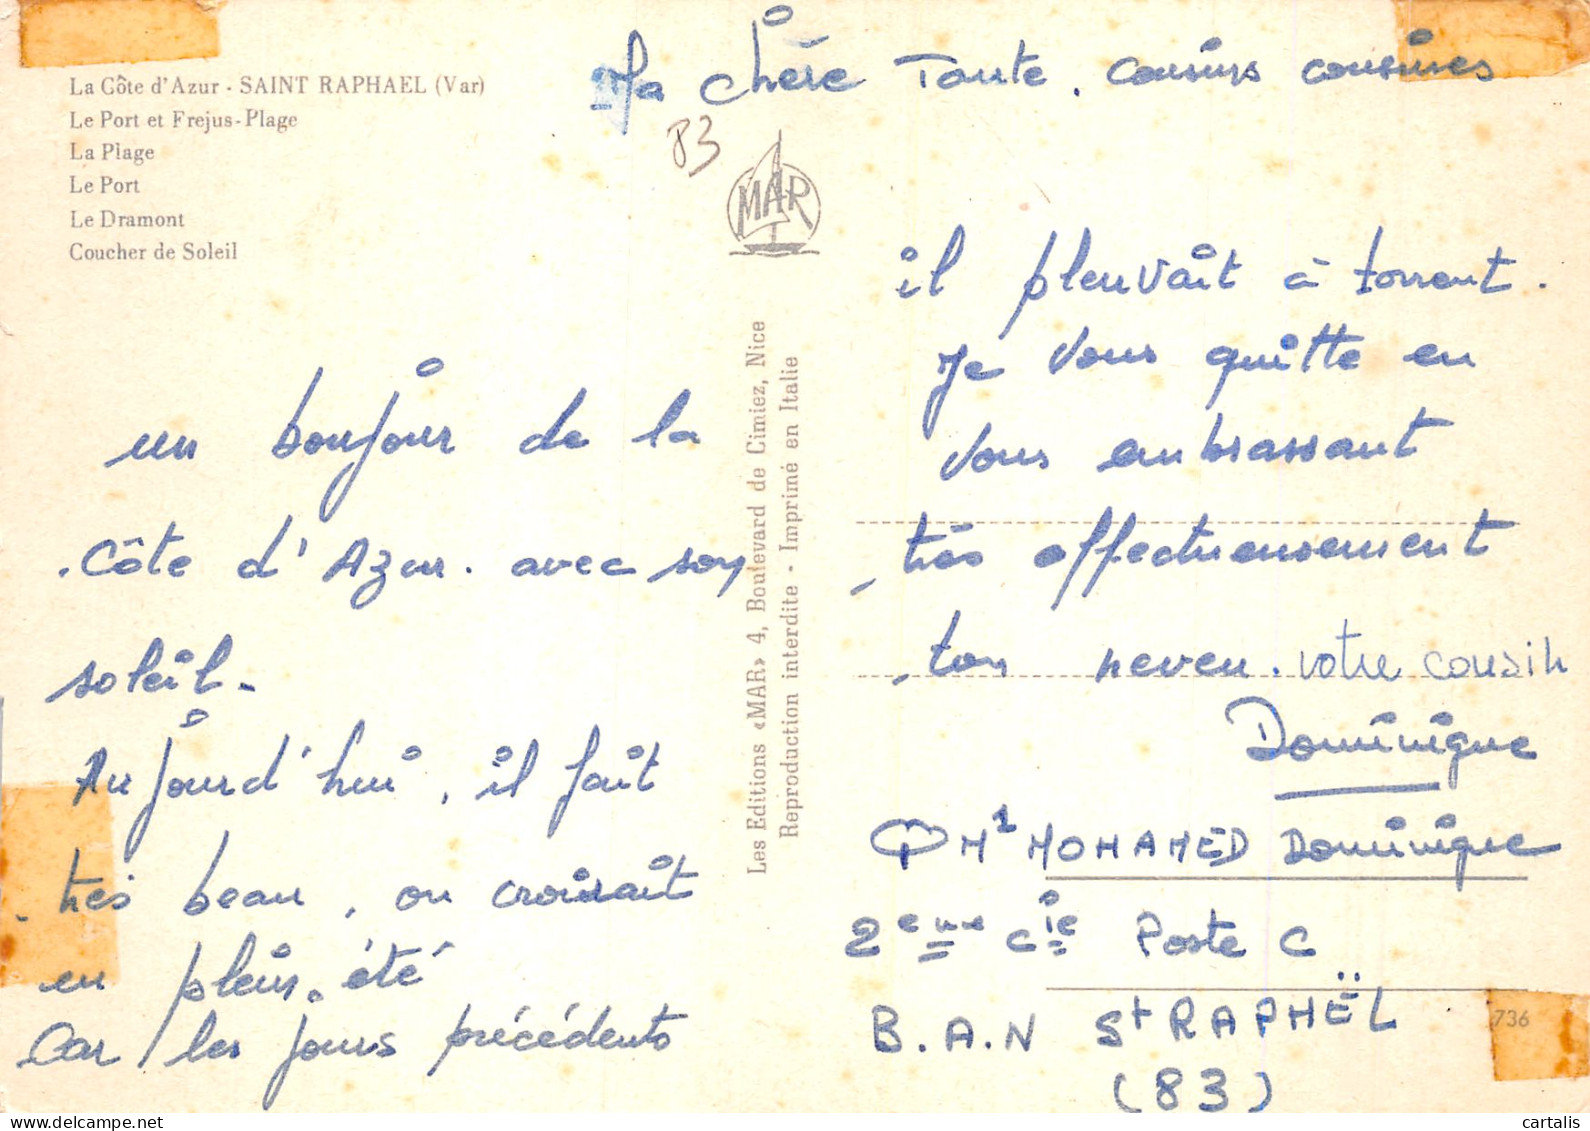 La Côte d'Azur - SAINT RAPHAEL (Var)
Le Port et Frejus-Plage
La Plage
Le Port
Le Dramont
Coucher de Soleil
Ma chère Tante, cousins cousines
83
MAR
un bonjour de la
Côte d'Azur. avec son
soleil.
Aujourd'hui, il fait
très beau, on croirait
en plein été
Car les jours précédents
Les Editions «MAR» 4, Boulevard de Cimiez, Nice
Reproduction interdite - Imprimé en Italie
il pleuvait à torrent.
Je vous quitte en
vous embrassant
très affectueusement
ton neveu. votre cousin
Dominique
M MOHAMED Dominique
2eme Cie Poste C
B.A.N St RAPHËL
(83)
736
cartalis
www.delcampe.net